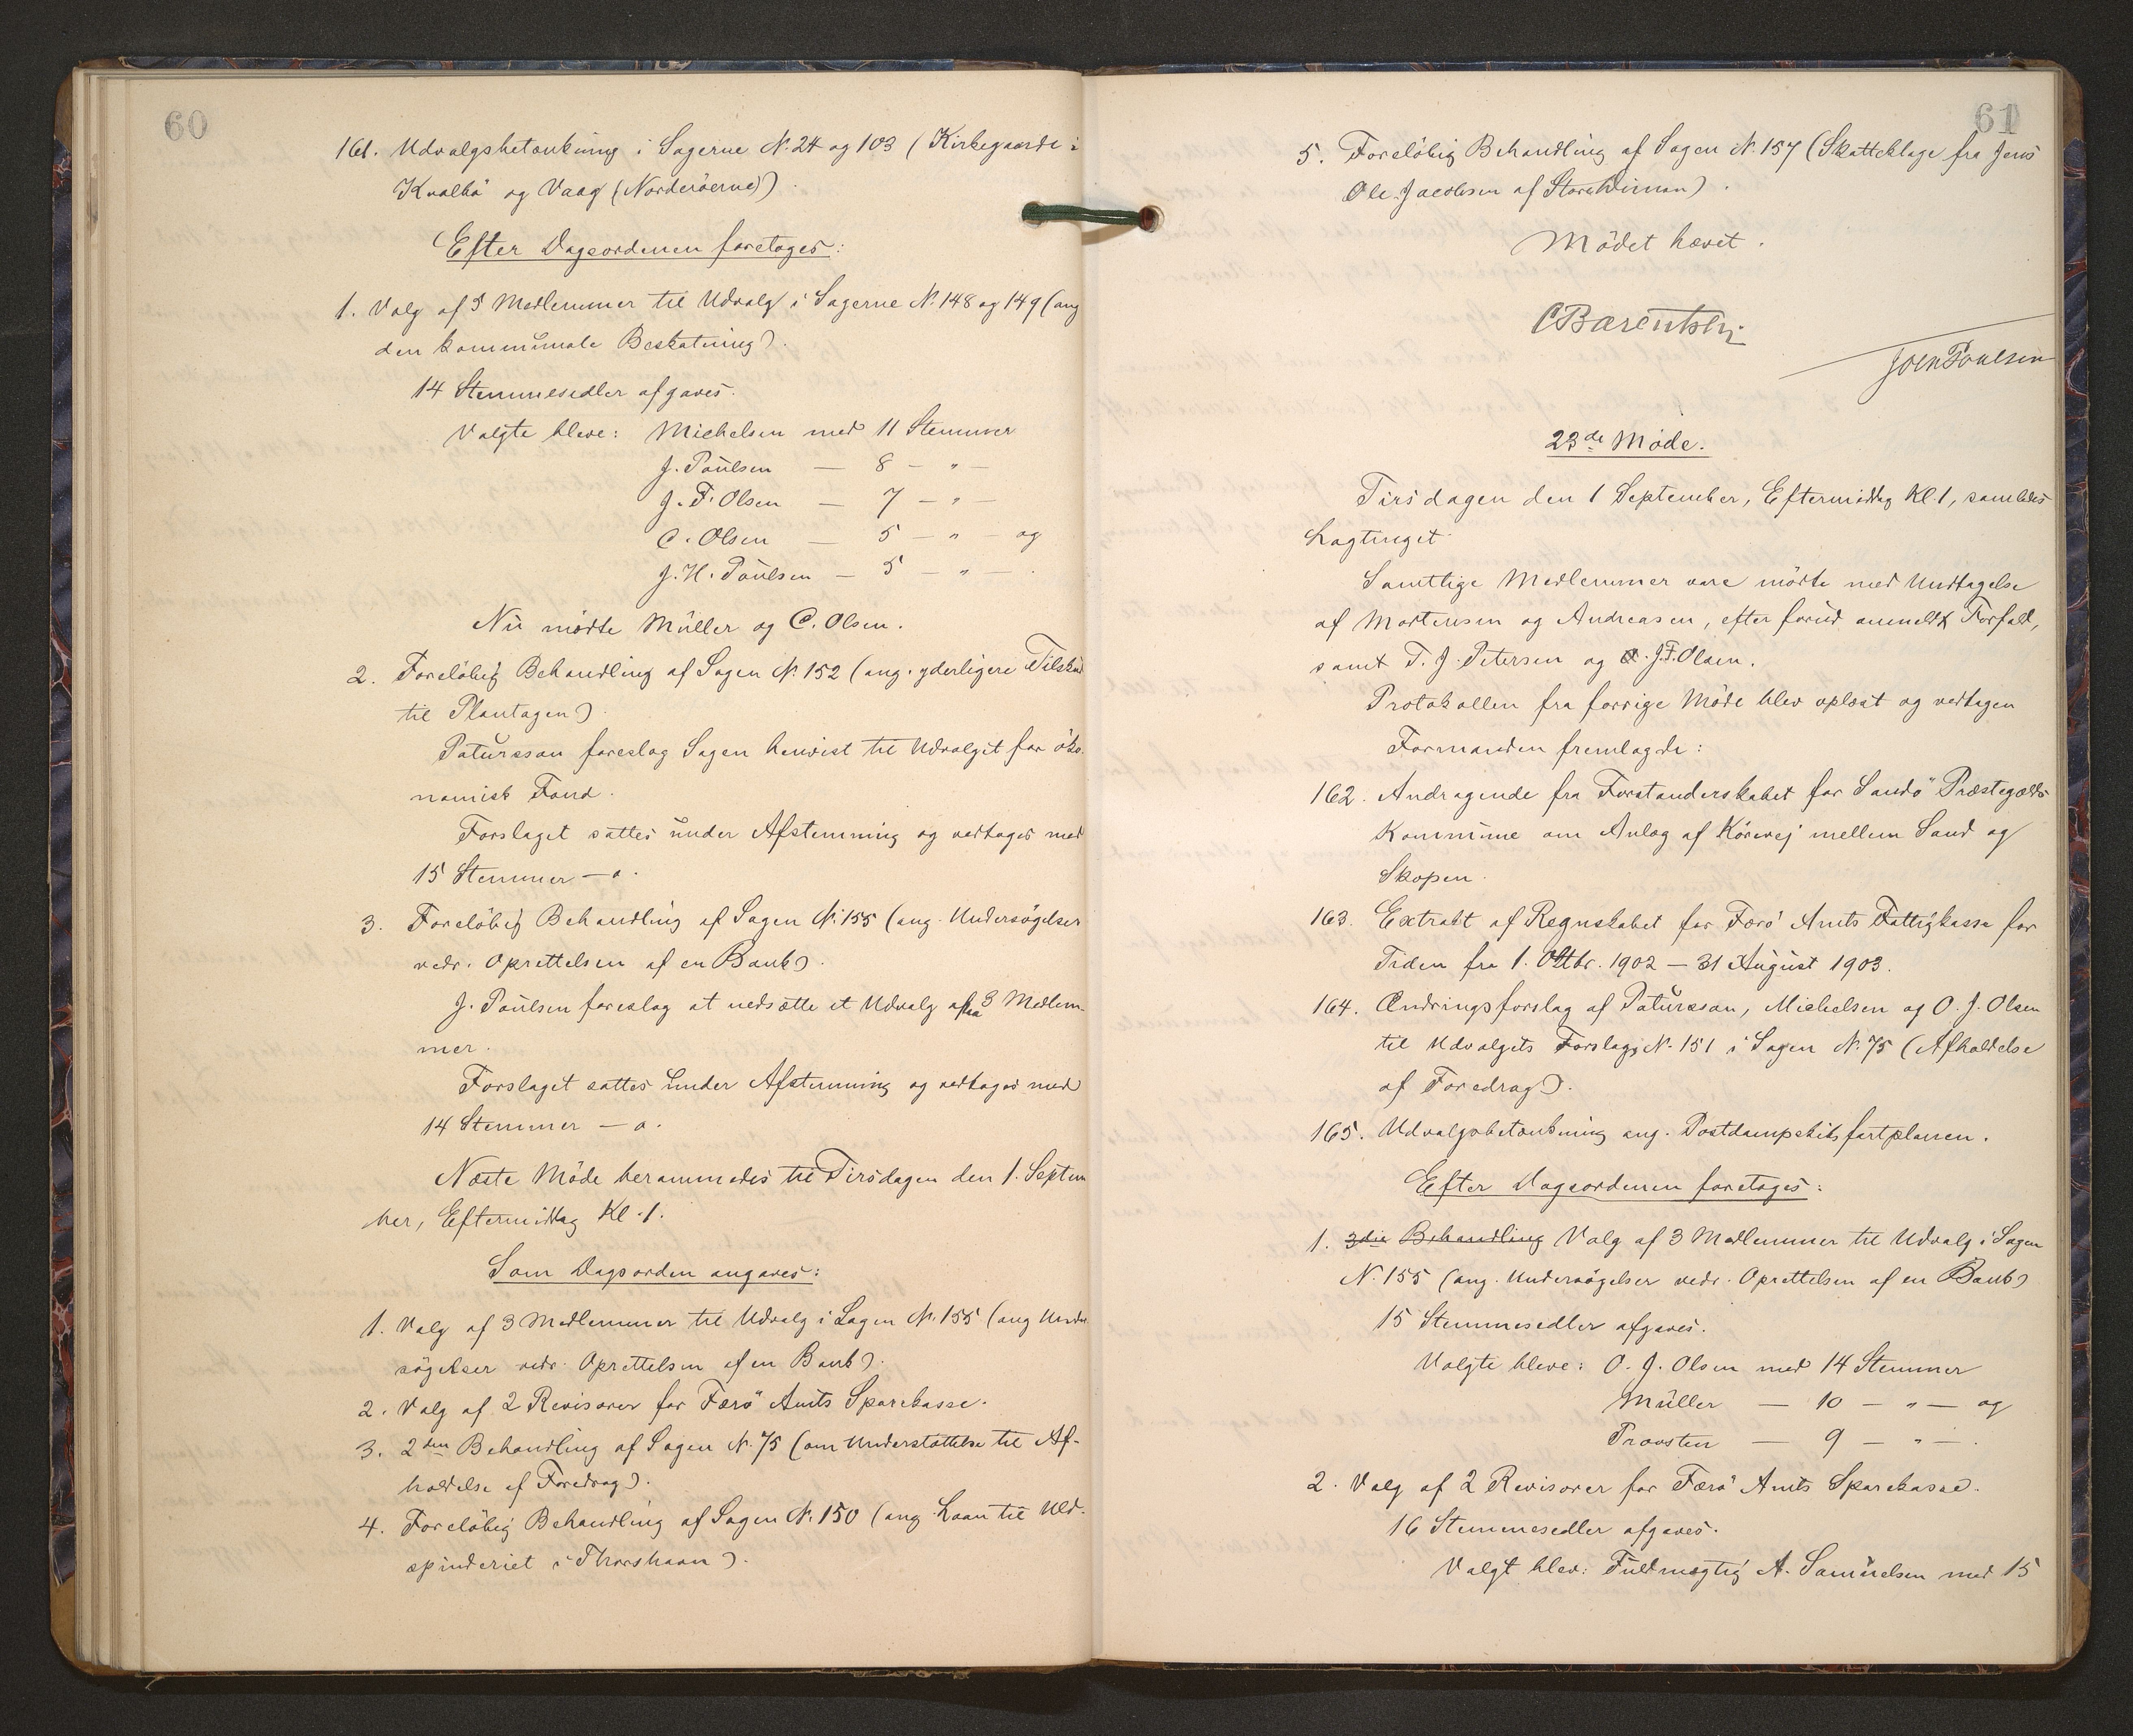 60
161. Udvalgsbetænkning i Sagerne N. 24 og 103 (Kirkegaarde i
Kvalbö og Vaag (Norderöerne)).
Efter Dagsordenen foretoges:
1. Valg af 5 Medlemmer til Udvalg i Sagerne N. 148 og 149 (ang
den kommunale Beskatning).
14 Stemmesedler afgaves.
Valgte bleve: Michelsen med 11 Stemmer
J. Poulsen — 8 — " —
J. F. Olsen — 7 — " —
C. Olsen — 5 — " — og
J. H. Poulsen — 5 — " — .
Nu mödte Müller og C. Olsen.
2. Foreløbig Behandling af Sagen N. 152 (ang. yderligere Tilskud
til Plantagen).
Patursson foreslog Sagen henvist til Udvalget for öko-
nomisk Fond.
Forslaget sattes under Afstemning og vedtoges med
15 Stemmer — o.
3. Foreløbig Behandling af Sagen N. 155 (ang. Undersögelser
vedr. Oprettelsen af en Bank).
J. Poulsen foreslog at nedsætte et Udvalg paa 3 Medlem-
mer.
Forslaget sattes under Afstemning og vedtoges med
14 Stemmer — o.
Næste Möde berammedes til Tirsdagen den 1. Septem
ber, Eftermiddag Kl. 1.
Som Dagsorden angaves:
1. Valg af 3 Medlemmer til Udvalg i Sagen N. 155 (ang Under
sögelser vedr. Oprettelsen af en Bank).
2. Valg af 2 Revisorer for Færö Amts Sparekasse.
3. 2den Behandling af Sagen N. 75 (om Understøttelse til Af-
holdelse af Foredrag).
4. Foreløbig Behandling af Sagen N. 150 (ang. Laan til Uld-
spinderiet i Thorshavn).
61
5. Foreløbig Behandling af Sagen N. 157 (Skatteklage fra Jens
Ole Jacobsen af Store Dimon).
Mödet hævet.
CBærentsen
Joen Poulsen
23de Möde.
Tirsdagen den 1 September, Eftermiddag Kl. 1, samledes
Lagtinget.
Samtlige Medlemmer vare mödte med Undtagelse
af Mortensen og Andreasen, efter forud anmeldt Forfald,
samt T. J. Petersen og J.F. Olsen.
Protokollen fra forrige Möde blev oplæst og vedtagen
Formanden fremlagde:
162. Andragende fra Forstanderskabet for Sandö Præstegælds
Kommune om Anlæg af Körevej mellem Sand og
Skopen.
163. Extrakt af Regnskabet for Færö Amts Fattigkasse for
Tiden fra 1. Oktbr. 1902 — 31 August 1903.
164. Ændringsforslag af Patursson, Michelsen og O. J. Olsen
til Udvalgets Forslag N. 151 i Sagen N. 75 (Afholdelse
af Foredrag).
165. Udvalgsbetænkning ang. Postdampskibsfartplanen.
Efter Dagsordenen foretoges:
1. 3die Behandling Valg af 3 Medlemmer til Udvalg i Sagen
N. 155 (ang. Undersögelser vedr. Oprettelsen af en Bank)
15 Stemmesedler afgaves.
Valgte bleve: O. J. Olsen med 14 Stemmer
Müller — 10 — " — og
Provsten — 9 — " — .
2. Valg af 2 Revisorer for Færö Amts Sparekasse.
16 Stemmesedler afgaves.
Valgt blev: Fuldmægtig A. Samuelsen med 15